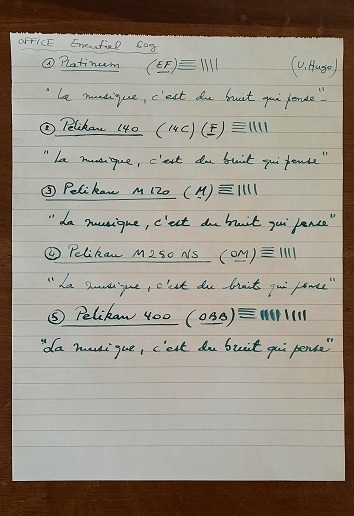 OFFICE Essential 60g
① Platinum (EF) (V. Hugo)
"La musique, c'est du bruit qui pense"
② Pelikan 140 (14C) (F)
"La musique, c'est du bruit qui pense"
③ Pelikan M120 (M)
"La musique, c'est du bruit qui pense"
④ Pelikan M250 NS (OM)
"La musique, c'est du bruit qui pense"
⑤ Pelikan 400 (OBB)
"La musique, c'est du bruit qui pense"